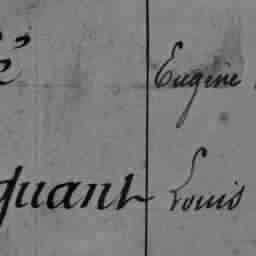 é Eugène
quant Louis